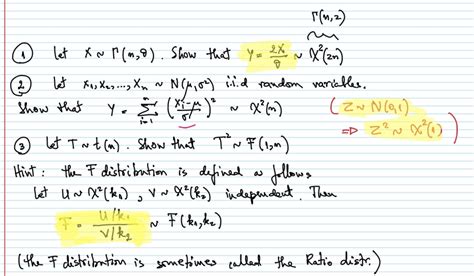 Γ(n,2)
① Let X ~ Γ(n,θ). Show that Y = 2X/θ ~ χ²(2n)
② Let X₁, X₂, ..., Xₙ ~ N(μ,σ²) i.i.d random variables.
Show that Y = Σᵢ₌₁ⁿ ((Xᵢ-μ)/σ)² ~ χ²(n)
( Z ~ N(0,1)
⇒ Z² ~ χ²(1) )
③ Let T ~ t(n). Show that T² ~ F(1,n)
Hint: the F distribution is defined as follows
Let U ~ χ²(k₁), V ~ χ²(k₂) independent. Then
F = (U/k₁)/(V/k₂) ~ F(k₁,k₂)
(the F distribution is sometimes called the Ratio distr.)